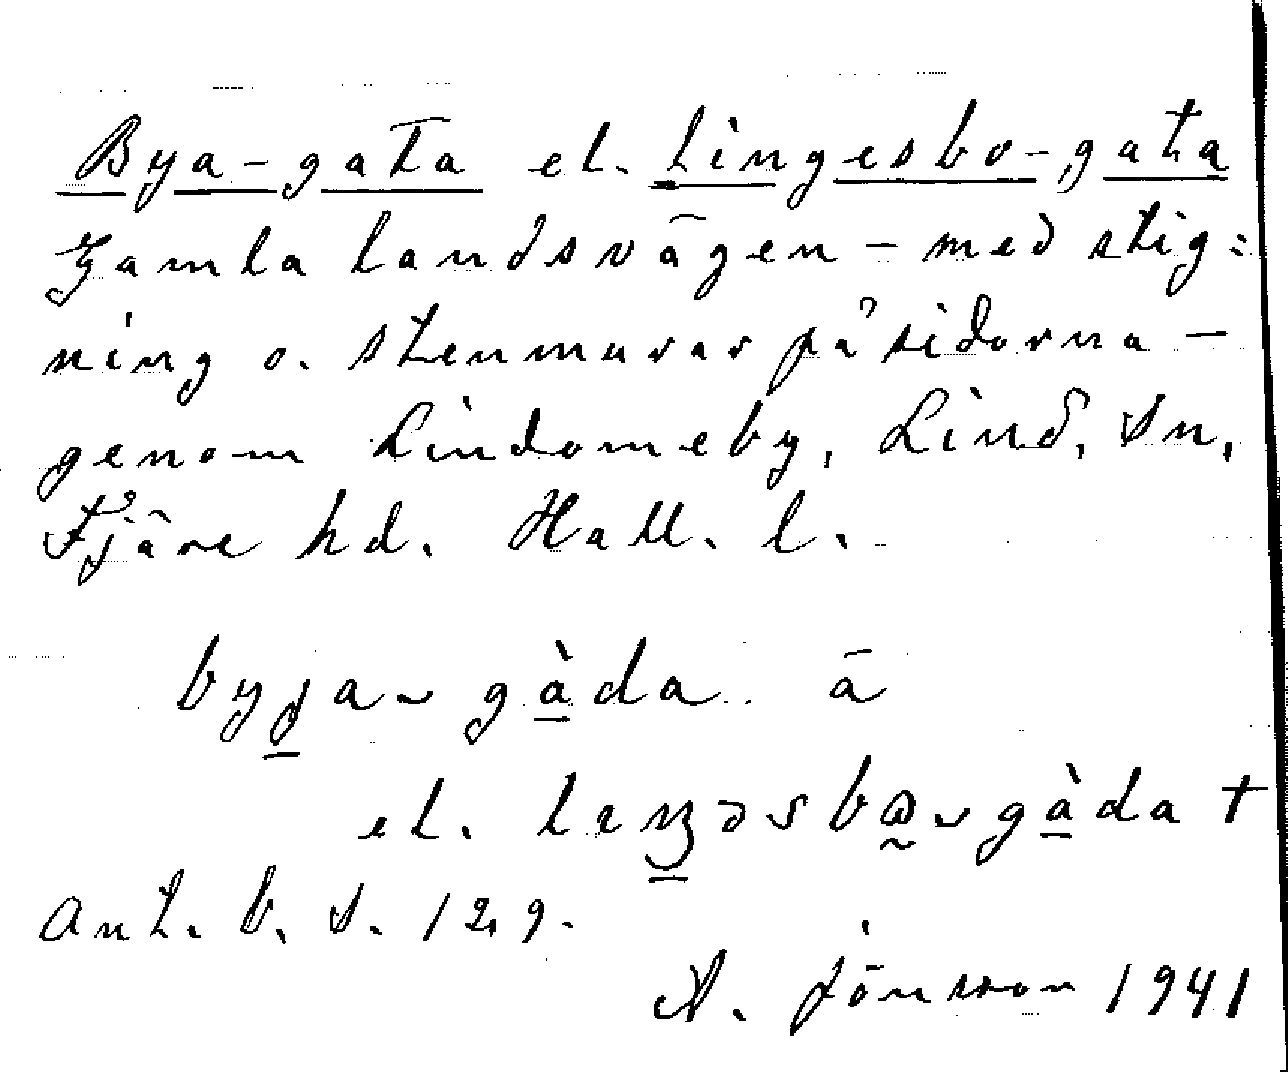 Bya-gata el. Lingesbo-gata
Gamla landsvägen - med stig=
ning o. stenmurar på sidorna -
genom Lindomeby, Lind. Sn,
Fjäre hd. Hall. l.
byja gàda ā
el. lıŋəsbɷ gàda †
Ant. b. s. 129.
A. Jönsson 1941